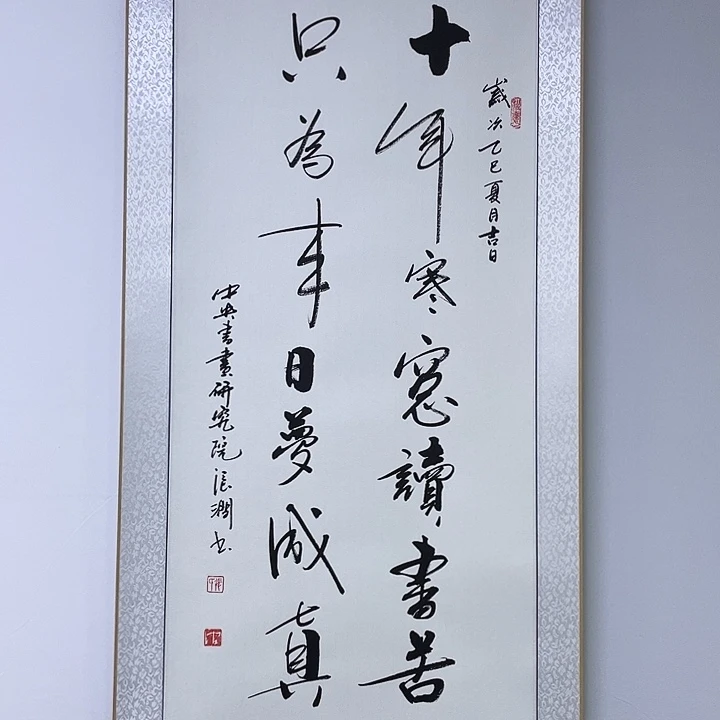 歲次乙巳夏月吉日
十年寒窓讀書苦
只為来日夢成真
中央書畫研究院張潤书